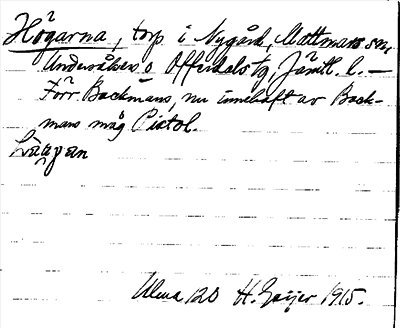 Högarna, torp i Nygård, Mattmars sn,
Undersåkers o Offerdals tg, Jämtl. l. —
Förr Backmans, nu innehaft av Back-
mans måg Pistol.
Läajan
Ulma 120 H. Geijer 1915.